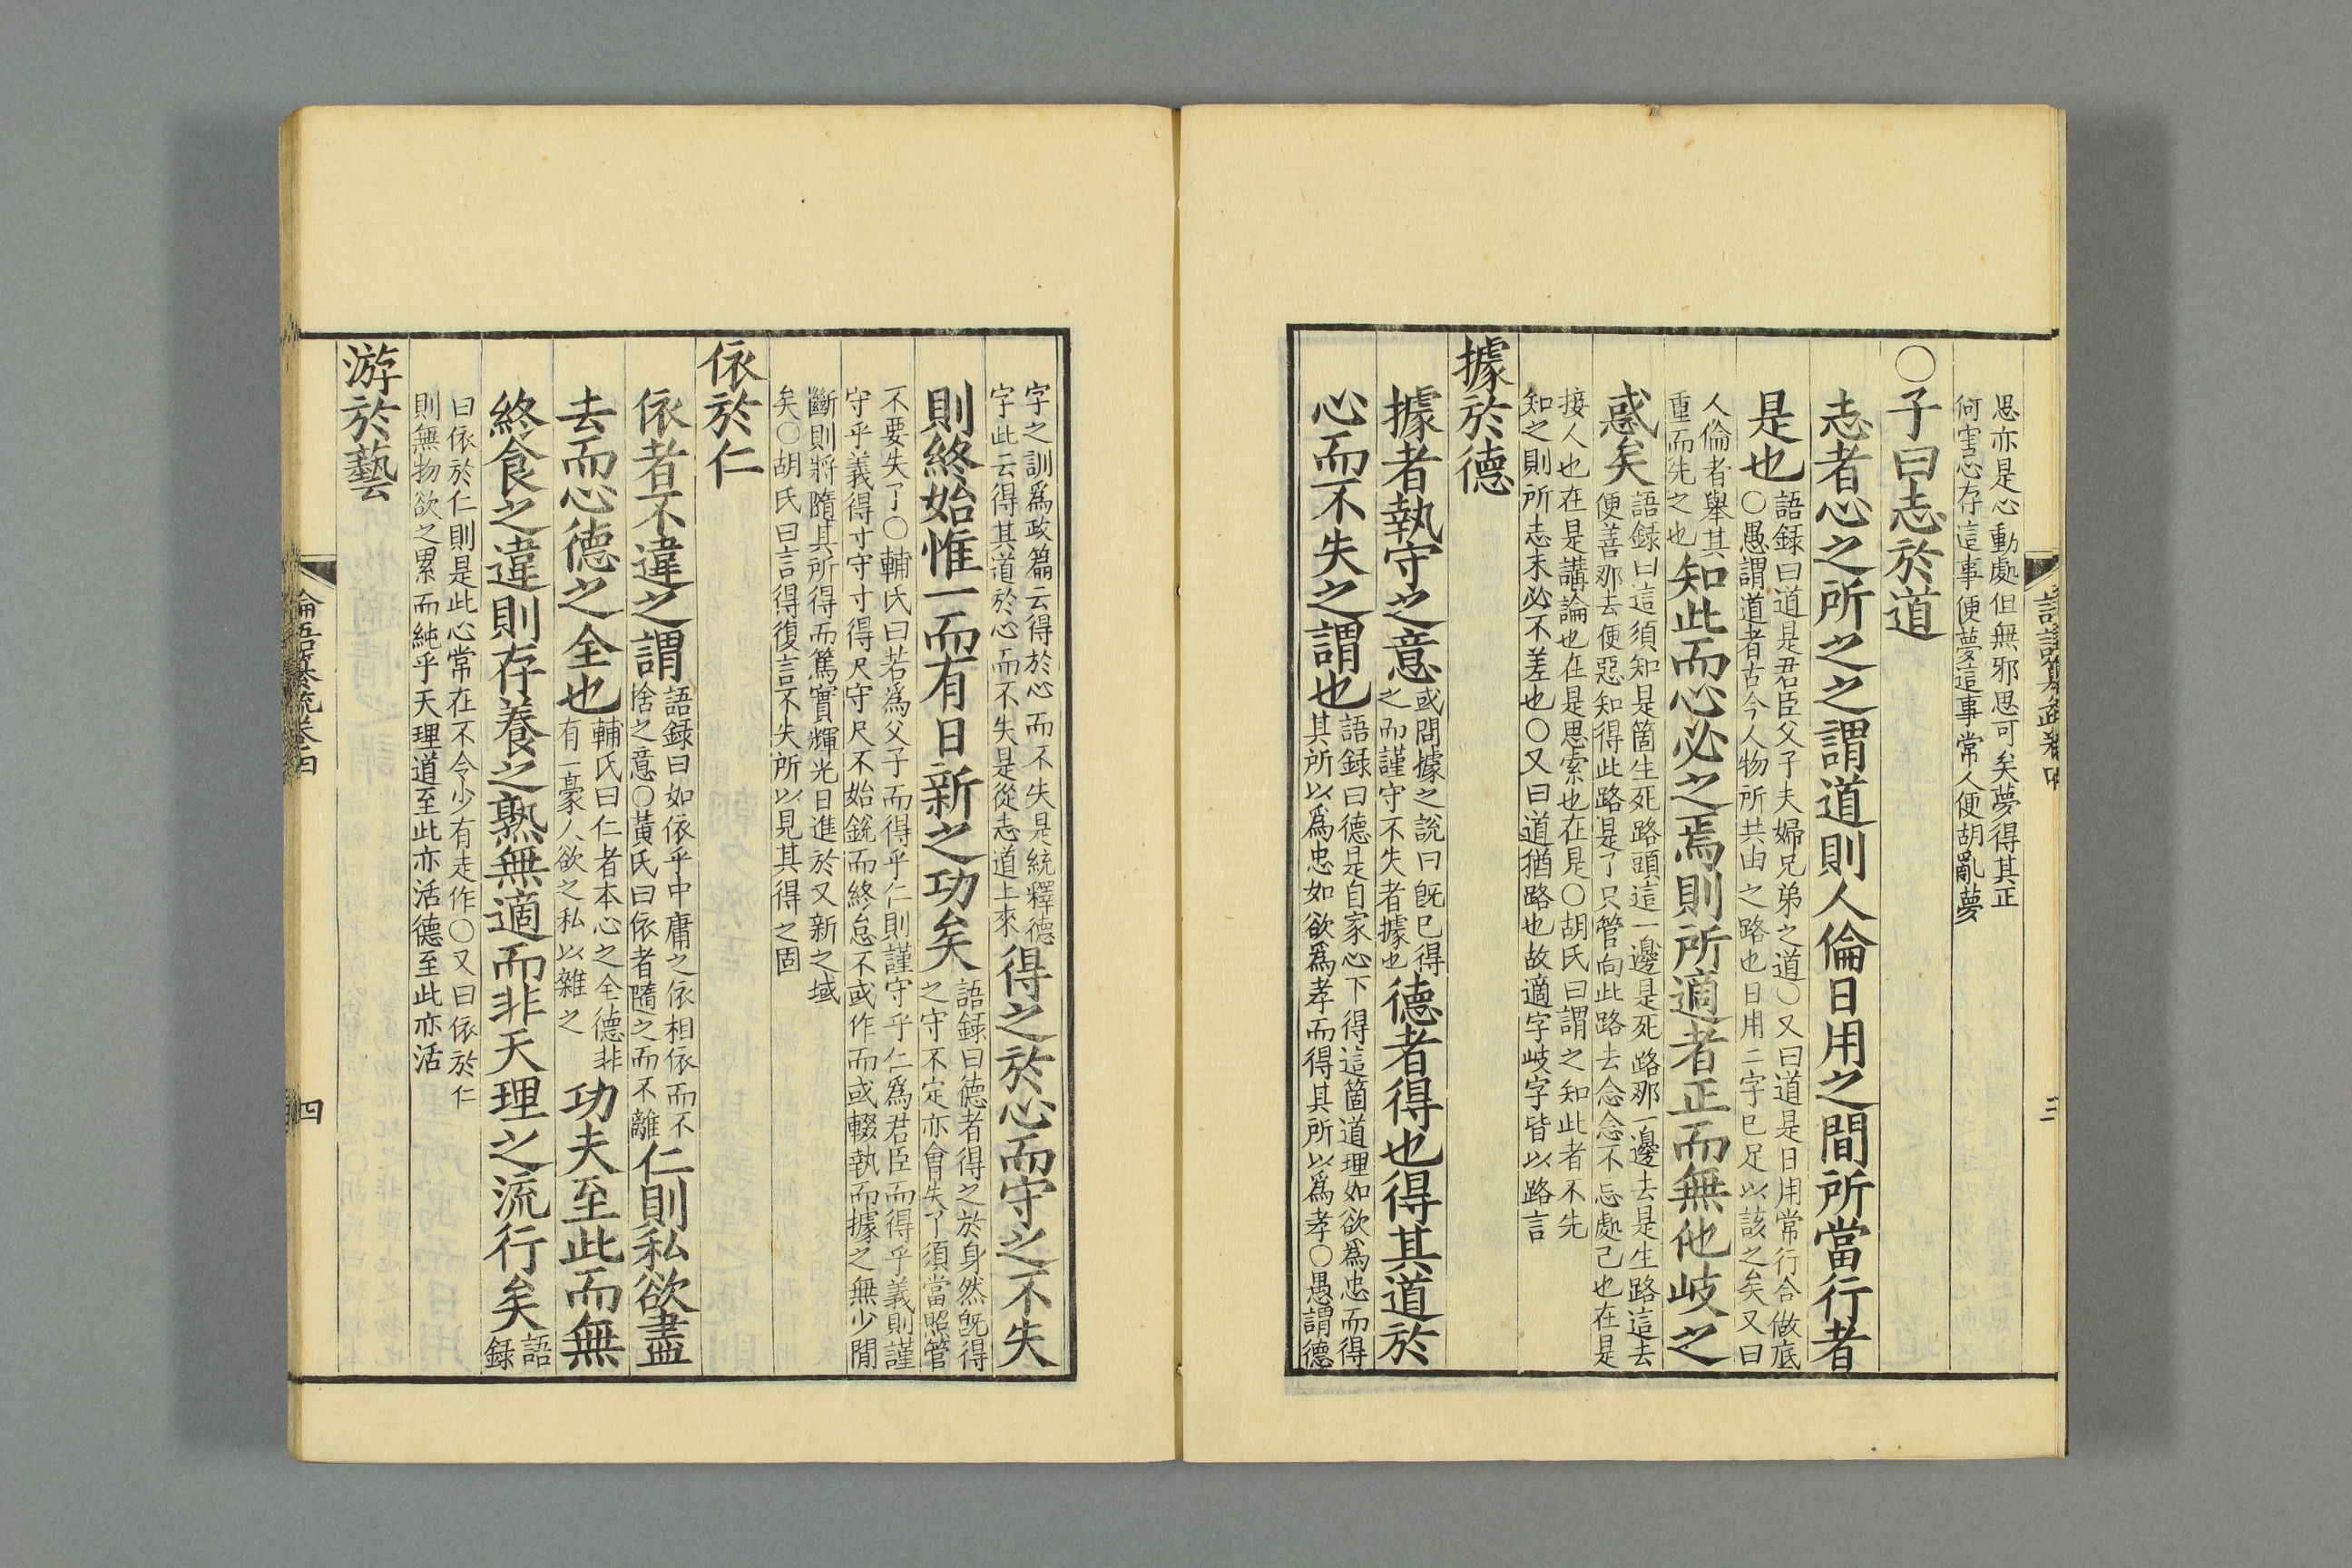 思亦是心動處但無邪思可矣夢得其正
何害心存這事便夢這事常人便胡亂夢
○子曰志於道
志者心之所之之謂道則人倫日用之間所當行者
是也
語録曰道是君臣父子夫婦兄弟之道○又曰道是日用常行合做底
○愚謂道者古今人物所共由之路也日用二字已足以該之矣又曰
人倫者舉其
重而先之也
知此而心必之焉則所適者正而無他岐之
惑矣
語録曰這須知是箇生死路頭這一邊是死路那一邊去是生路這去
便善那去便惡知得此路是了只管向此路去念念不忘處己也在是
接人也在是講論也在是思索也在是○胡氏曰謂之知此者不先
知之則所志未必不差也○又曰道猶路也故適字岐字皆以路言
據於德
據者執守之意
或問據之說曰旣已得
之而謹守不失者據也
德者得也得其道於
心而不失之謂也
語録曰德是自家心下得這箇道理如欲爲忠而得
其所以爲忠如欲爲孝而得其所以爲孝○愚謂德
三
字之訓爲政篇云得於心而不失是統釋德
字此云得其道於心而不失是從志道上來
得之於心而守之不失
則終始惟一而有日新之功矣
語録曰德者得之於身然旣得
之守不定亦會失了須當照管
不要失了○輔氏曰若爲父子而得乎仁則謹守乎仁爲君臣而得乎義則謹
守乎義得寸守寸得尺守尺不始銳而終怠不或作而或輟執而據之無少間
斷則將隨其所得而篤實輝光日進於又新之域
矣○胡氏曰言得復言不失所以見其得之固
依於仁
依者不違之謂
語録曰如依乎中庸之依相依而不
捨之意○黃氏曰依者隨之而不離
仁則私欲盡
去而心德之全也
輔氏曰仁者本心之全德非
有一豪人欲之私以雜之
功夫至此而無
終食之違則存養之熟無適而非天理之流行矣
語
録
曰依於仁則是此心常在不令少有走作○又曰依於仁
則無物欲之累而純乎天理道至此亦活德至此亦活
游於藝
論語纂疏卷四
四